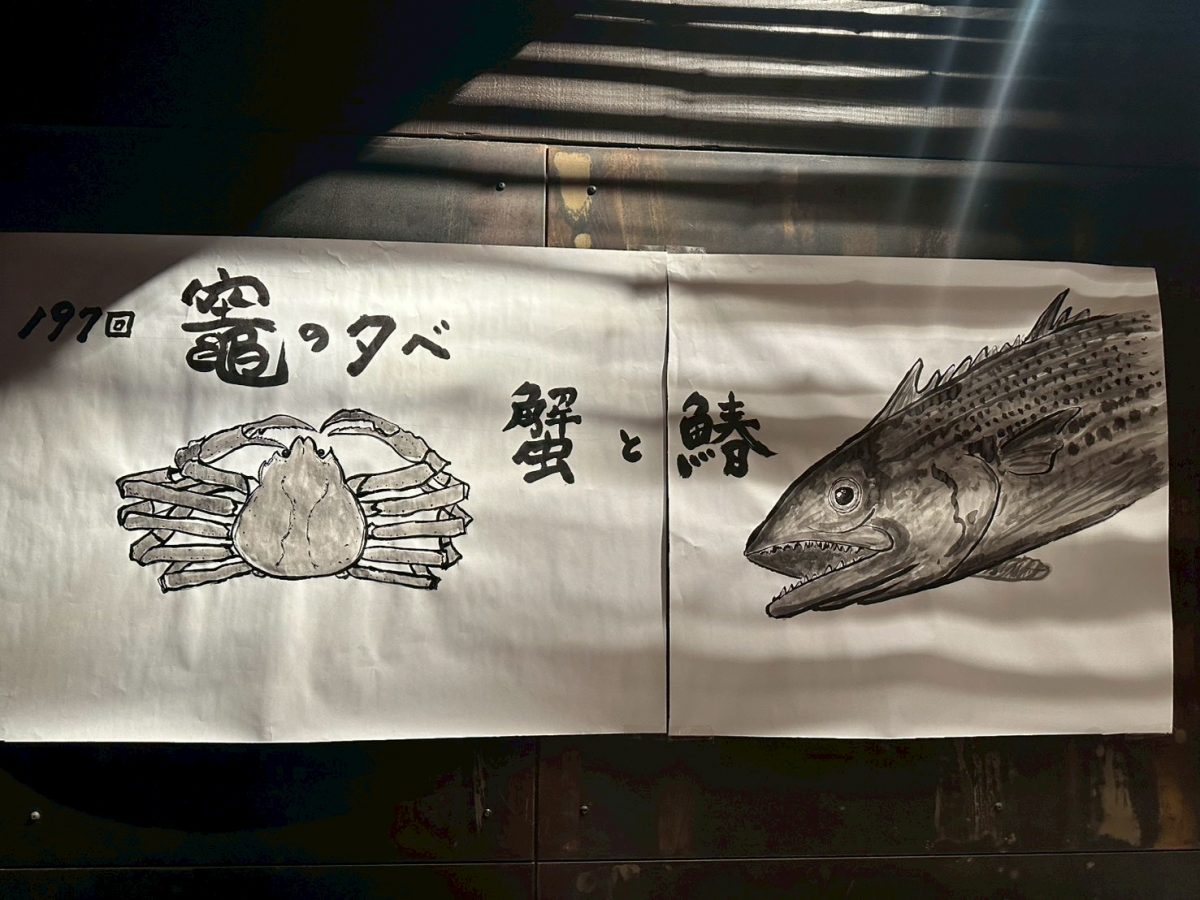 197回 竈の夕べ
蟹と鰆